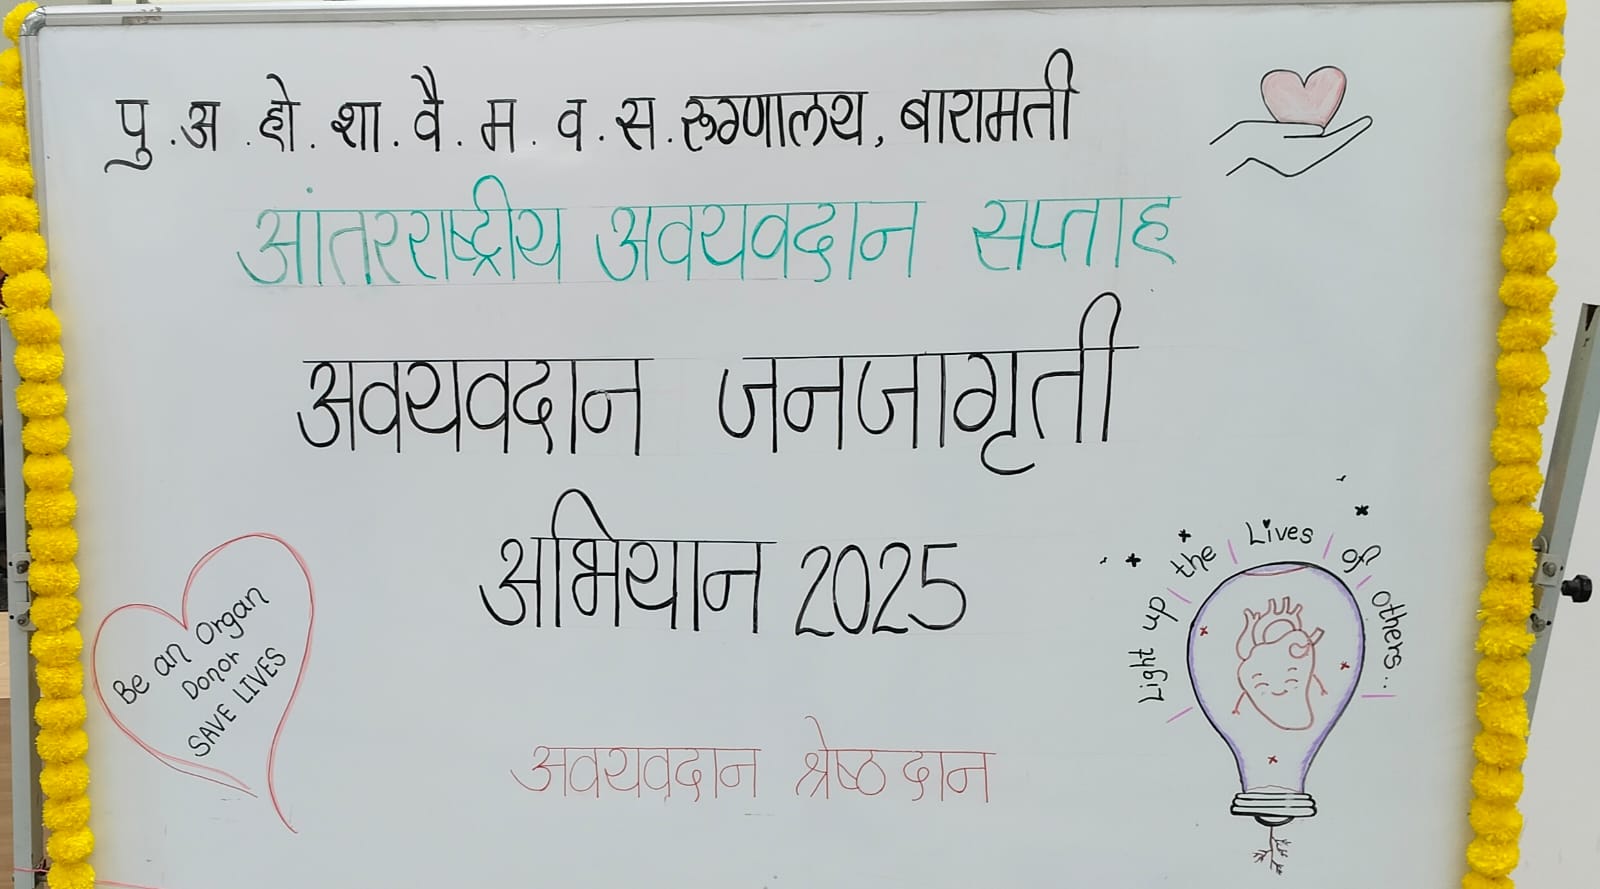 पु.अ.हो.शा.वै.म.व.स.रुग्णालय, बारामती
आंतरराष्ट्रीय अवयवदान सप्ताह
अवयवदान जनजागृती
अभियान 2025
Be an Organ
Donor
SAVE LIVES
Light up the Lives of others...
अवयवदान श्रेष्ठ दान